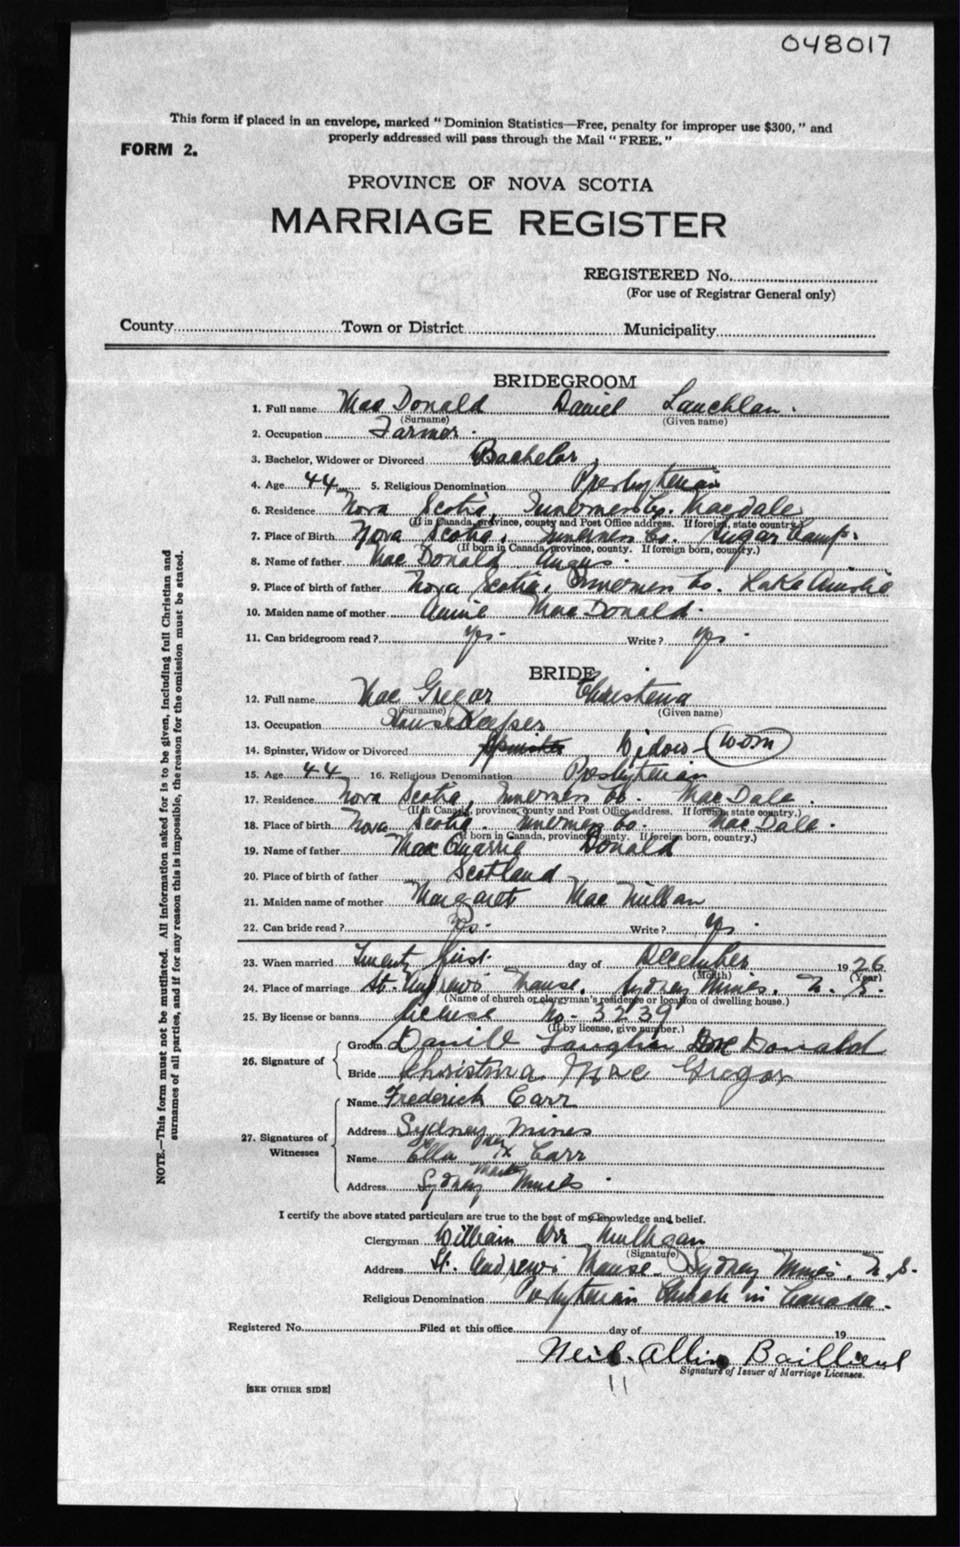 048017
This form if placed in an envelope, marked "Dominion Statistics—Free, penalty for improper use $300," and
properly addressed will pass through the Mail "FREE."
FORM 2.
PROVINCE OF NOVA SCOTIA
MARRIAGE REGISTER
REGISTERED No.
(For use of Registrar General only)
County Town or District Municipality
BRIDEGROOM
1. Full name Mac Donald Daniel Lauchlan.
(Surname) (Given name)
2. Occupation Farmer.
3. Bachelor, Widower or Divorced Bachelor.
4. Age 44 5. Religious Denomination Presbyterian
6. Residence Nova Scotia, Inverness Co. Macdale
(If in Canada, province, county and Post Office address. If foreign, state country.)
7. Place of Birth Nova Scotia, Inverness Co. Sugar Camp.
(If born in Canada, province, county. If foreign born, country.)
8. Name of father Mac Donald Angus.
9. Place of birth of father Nova Scotia, Inverness Co. Lake Ainslie
10. Maiden name of mother Annie Mac Donald.
11. Can bridegroom read? Yes. Write? Yes.
BRIDE
12. Full name Mac Gregor Christena
(Surname) (Given name)
13. Occupation House Keeper
14. Spinster, Widow or Divorced Spinster Widow
15. Age 44 16. Religious Denomination Presbyterian
17. Residence Nova Scotia, Inverness Co. Mac Dale.
(If in Canada, province, county and Post Office address. If foreign state country.)
18. Place of birth Nova Scotia. Inverness Co. Mac Dale.
(If born in Canada, province, county. If foreign born, country.)
19. Name of father Mac Quarrie Donald
20. Place of birth of father Scotland
21. Maiden name of mother Margaret Mac Millan
22. Can bride read? Yes. Write? Yes.
23. When married Twenty first day of December 1926
(Month) (Year)
24. Place of marriage St. Andrew's Manse. Sydney Mines. N. S.
(Name of church or clergyman's residence or location of dwelling house.)
25. By license or banns License No. 3239
(If by license, give number.)
26. Signature of Groom Danile Lauglin Donald
Bride Christina Mac Gregor
27. Signatures of Witnesses
Name Frederick Carr
Address Sydney Mines
Name Ella her x mark Carr
Address Sydney Mines.
I certify the above stated particulars are true to the best of my knowledge and belief.
Clergyman William Orr Mulligan
(Signature)
Address St. Andrew's Manse. Sydney Mines. N. S.
Religious Denomination Presbyterian Church in Canada.
Registered No. Filed at this office day of 19
Neil Allin
Signature of Issuer of Marriage Licenses.
[SEE OTHER SIDE]
11
NOTE.—This form must not be mutilated. All information asked for is to be given, including full Christian and
surnames of all parties, and if for any reason this is impossible, the reason for the omission must be stated.